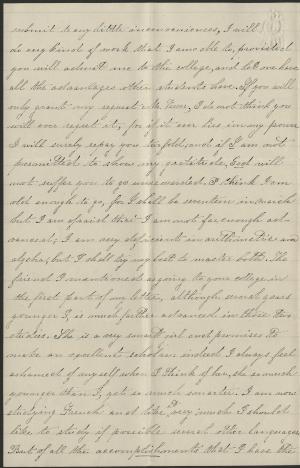 submit to any little inconveniences, I will
do any kind of work that I am able to, provided
you will admit me to the college, and let me have
all the advantages other students have. If you will
only grant my request Mr. I do not think you
will ever regret it, for if it ever lies in my power
I will surely repay you tenfold, and if I am not
permitted to show my gratitude, God will
not suffer you to go unrewarded. I think I am
old enough to go, for I shall be seventeen in March
but I am afraid that I am not far enough ad-
vanced; I am very deficient in arithmetic and
algebra, but I shall try my best to master both. The
friend I mentioned as going to your college in
the first part of my letter, although several years
younger I, is much further advanced in those two
studies. She is a very smart girl and promises to
make an excellent scholar, indeed I always feel
ashamed of myself when I think of her, she is much
younger than I, yet so much smarter. I am now
studying French and like it very much. I should
like to study if possible several other languages
But of all the accomplishments that I have the